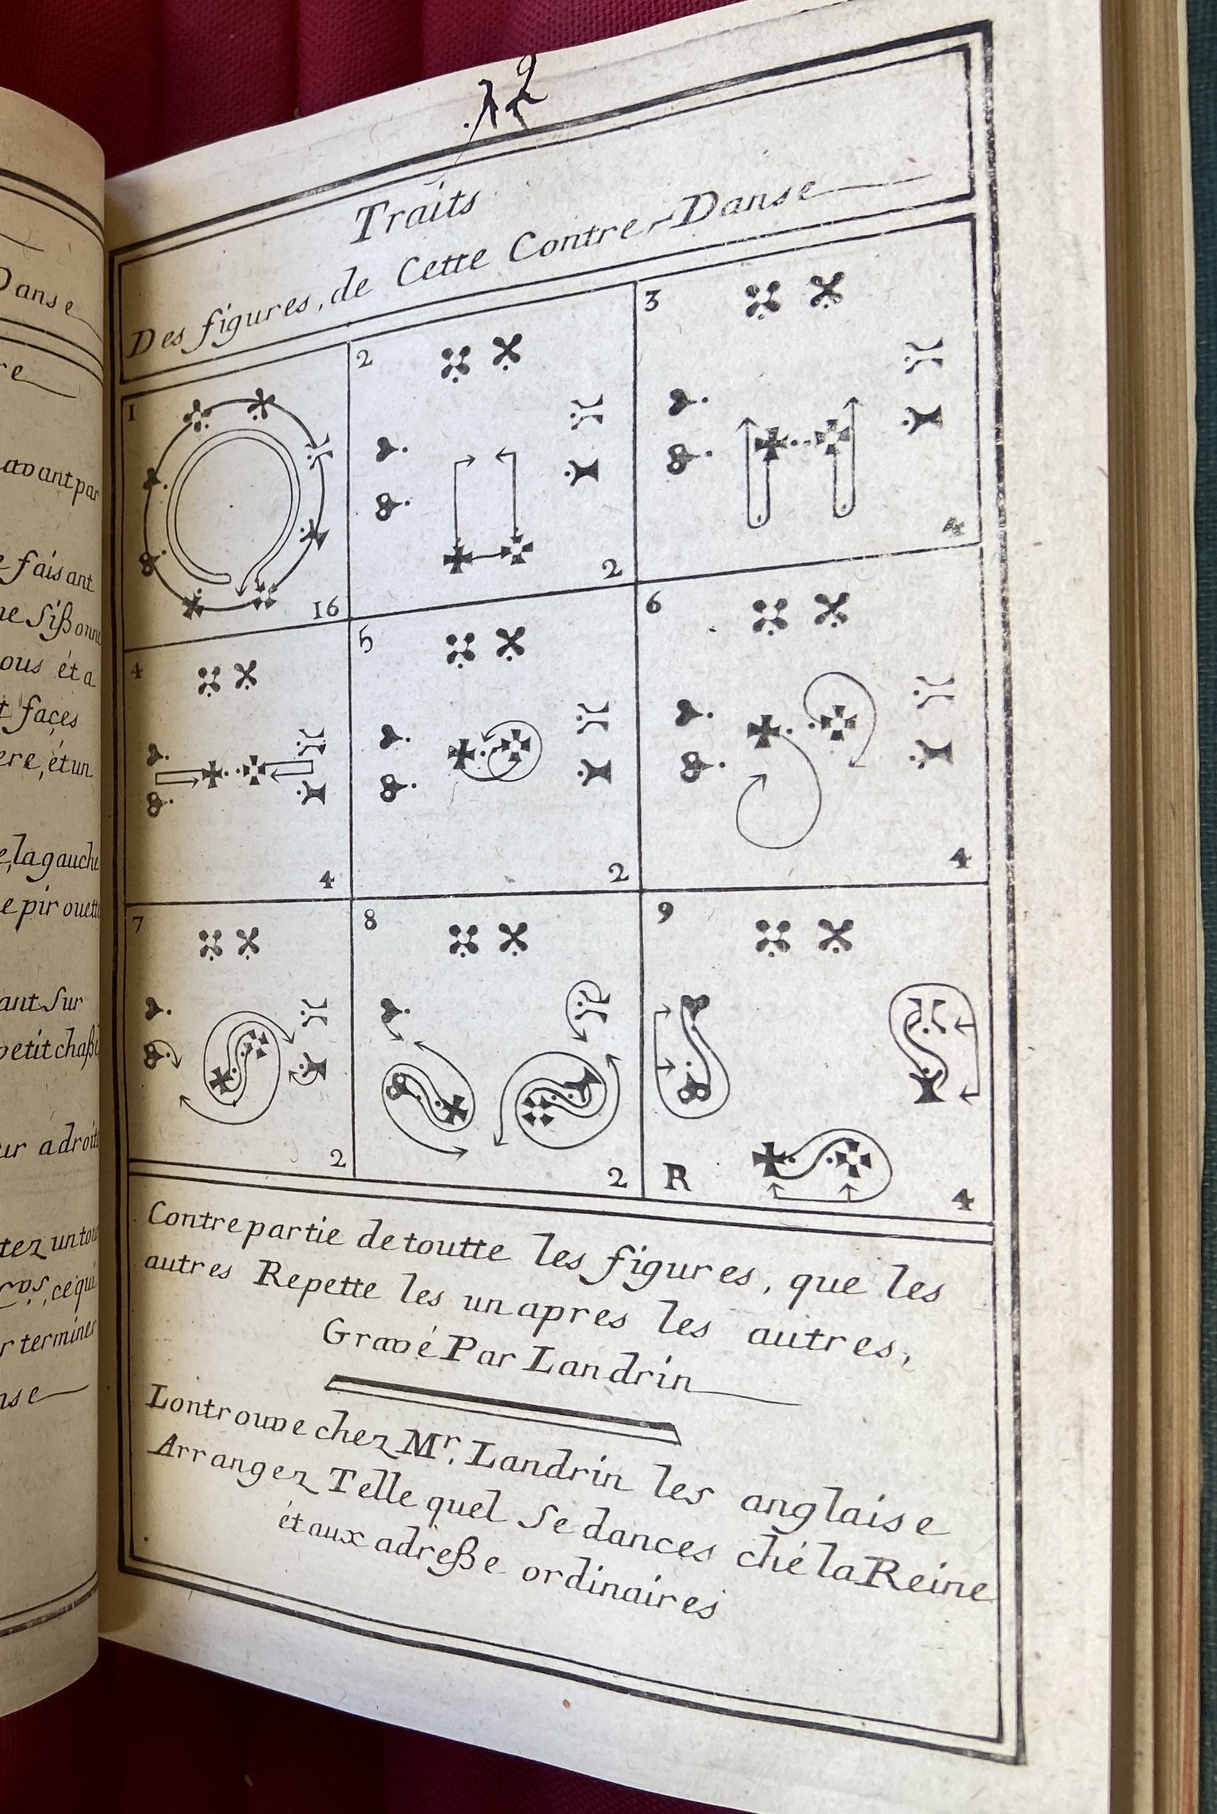 12
Traits
Des figures, de Cette Contre-Danse
1
16
2
2
3
4
4
4
5
2
6
4
7
2
8
2
9
R
4
Contrepartie detoutte les figures, que les
autres Repette les unapres les autres,
Gravé Par Landrin
Lontrouve chez Mr. Landrin les anglaise
Arrangez Telle quel Se dances ché la Reine
ét aux adreße ordinaires
Danse
re
avant par
faisant
ne Sißonne
ous ét a
t façes
ere, ét un
e, la gauche
e pirouette
ant Sur
petit chaß
ur a droite
tez un tour
ce qui
r terminer
nse